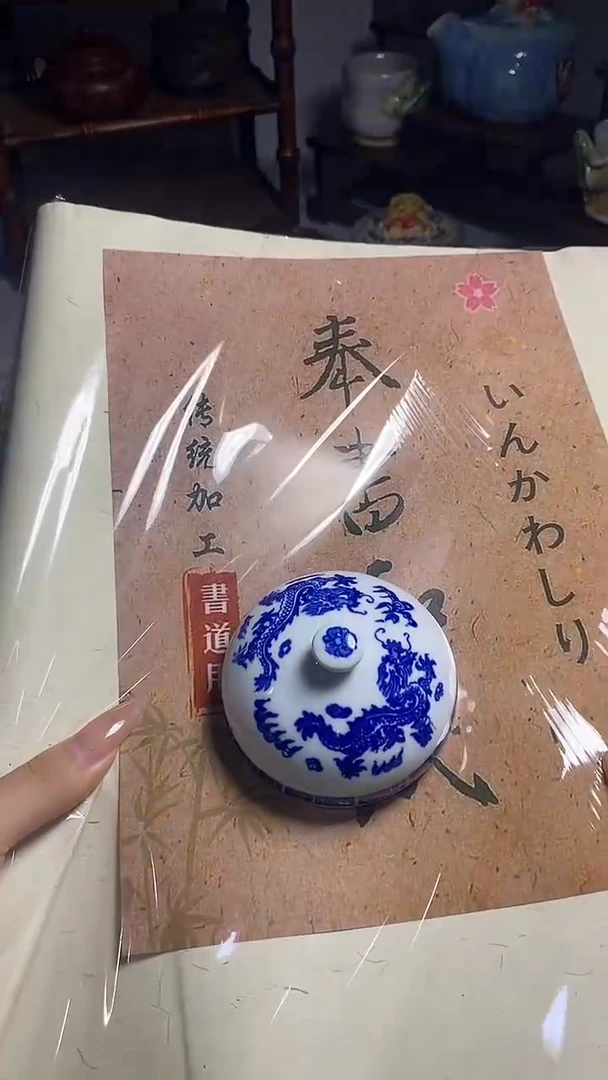 いんかわしり
奉書
传统加工
書道用